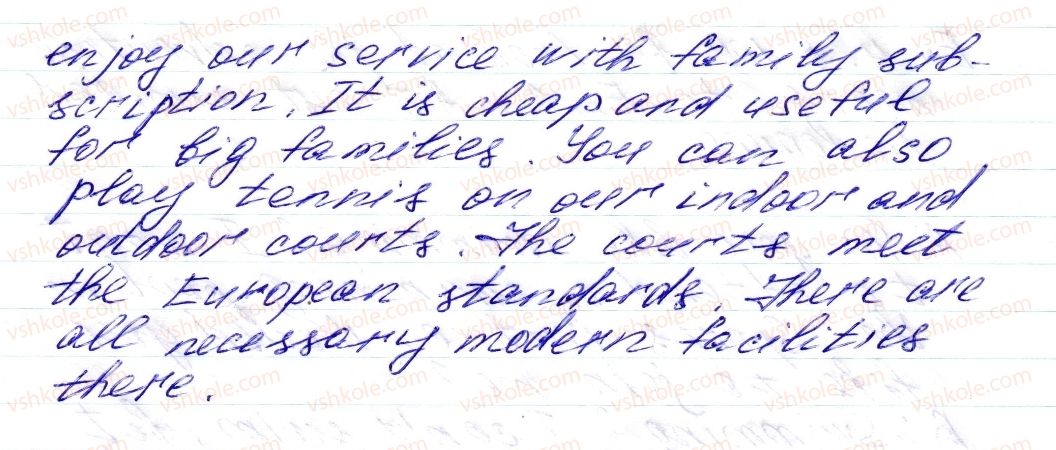 enjoy our service with family sub-
scription. It is cheap and useful
for big families. You can also
play tennis on our indoor and
outdoor courts. The courts meet
the European standards. There are
all necessary modern facilities
there.